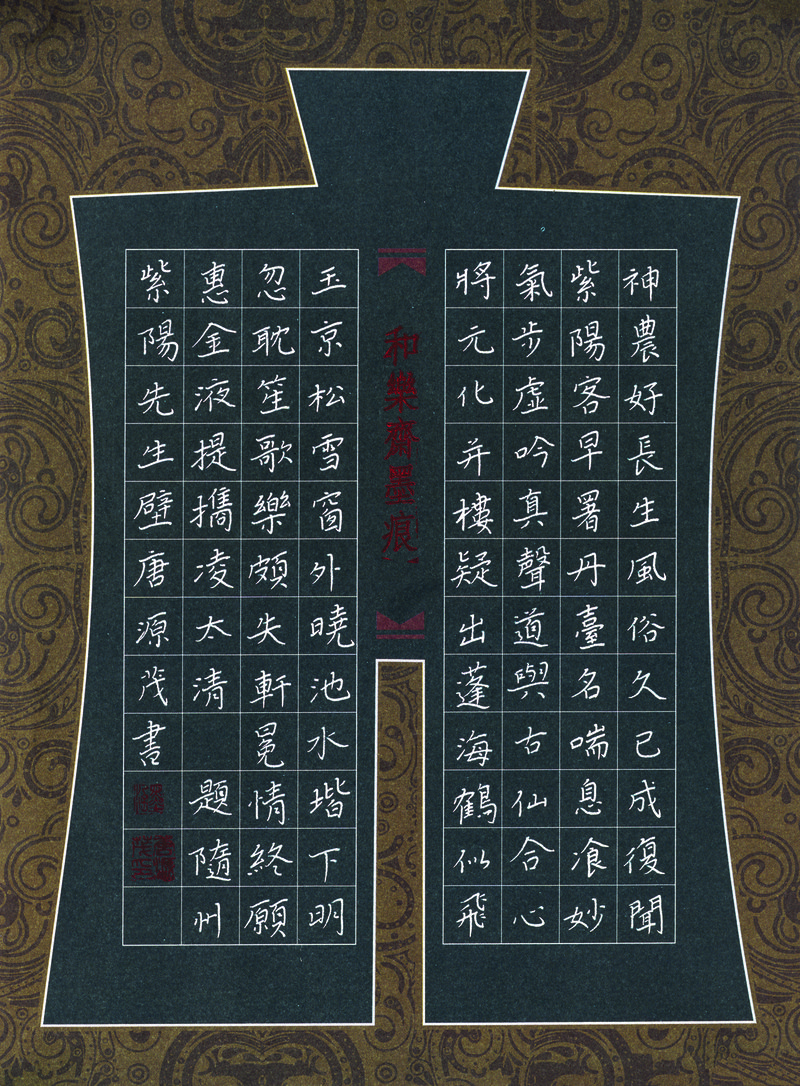 神農好長生風俗久已成復聞
紫陽客早署丹臺名喘息飡妙
氣步虛吟真聲道與古仙合心
將元化并樓疑出蓬海鶴似飛
和樂齋墨痕
玉京松雪窗外曉池水堦下明
忽耽笙歌樂頗失軒冕情終願
惠金液提攜凌太清 題隨州
紫陽先生壁唐源茂書